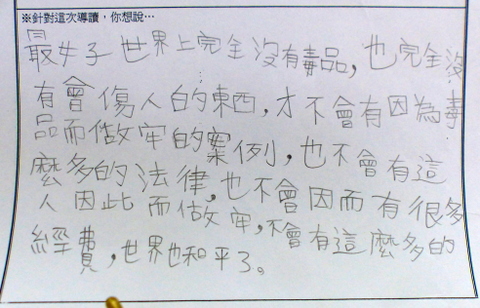 ※針對這次導讀，你想說…
最好世界上完全沒有毒品，也完全沒
有會傷人的東西，才不會有因為毒
品而做牢的案例，也不會有這
麼多的法律，也不會因而有很多
人因此而做牢，不會有這麼多的
經費，世界也和平了。